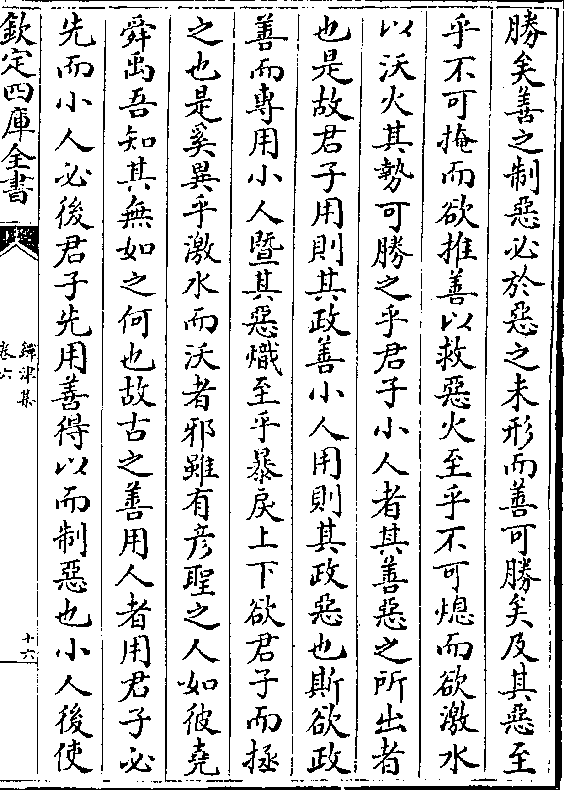 勝矣善之制惡必於惡之未形而善可勝矣及其惡至
乎不可掩而欲推善以救惡火至乎不可熄而欲激水
以沃火其勢可勝之乎君子小人者其善惡之所出者
也是故君子用則其政善小人用則其政惡也斯欲政
善而專用小人暨其惡熾至乎暴戾上下欲君子而拯
之也是奚異乎激水而沃者邪雖有彦聖之人如彼堯
舜禹吾知其無如之何也故古之善用人者用君子必
先而小人必後君子先用善得以而制惡也小人後使
欽定四庫全書
鐔津集
卷六
十六